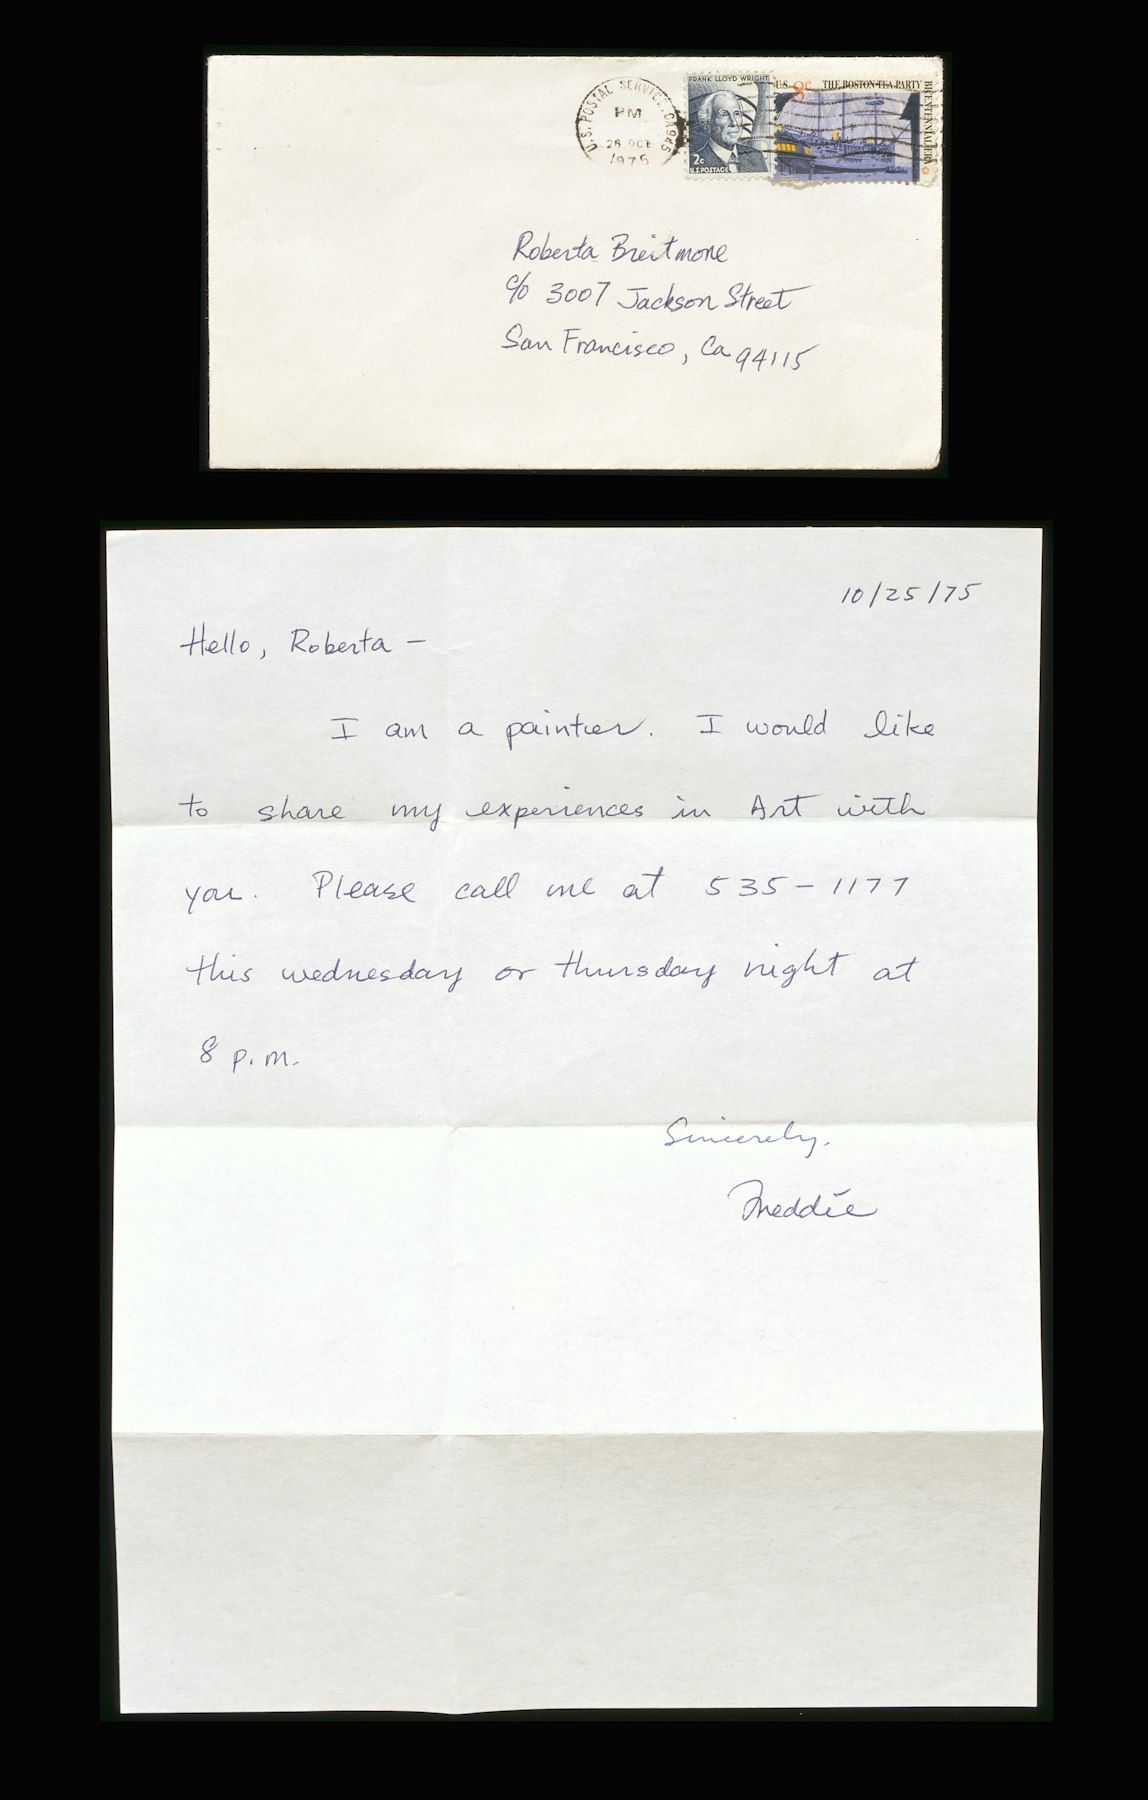 U.S. POSTAL SERVICE CA 945
PM
26 OCT
1975
FRANK LLOYD WRIGHT
2c
U.S. POSTAGE
U.S. 8c THE BOSTON TEA PARTY
BICENTENNIAL ERA
Roberta Breitmore
c/o 3007 Jackson Street
San Francisco, Ca 94115
10/25/75
Hello, Roberta —
I am a painter. I would like
to share my experiences in Art with
you. Please call me at 535-1177
this wednesday or thursday night at
8 p.m.
Sincerely,
Freddie